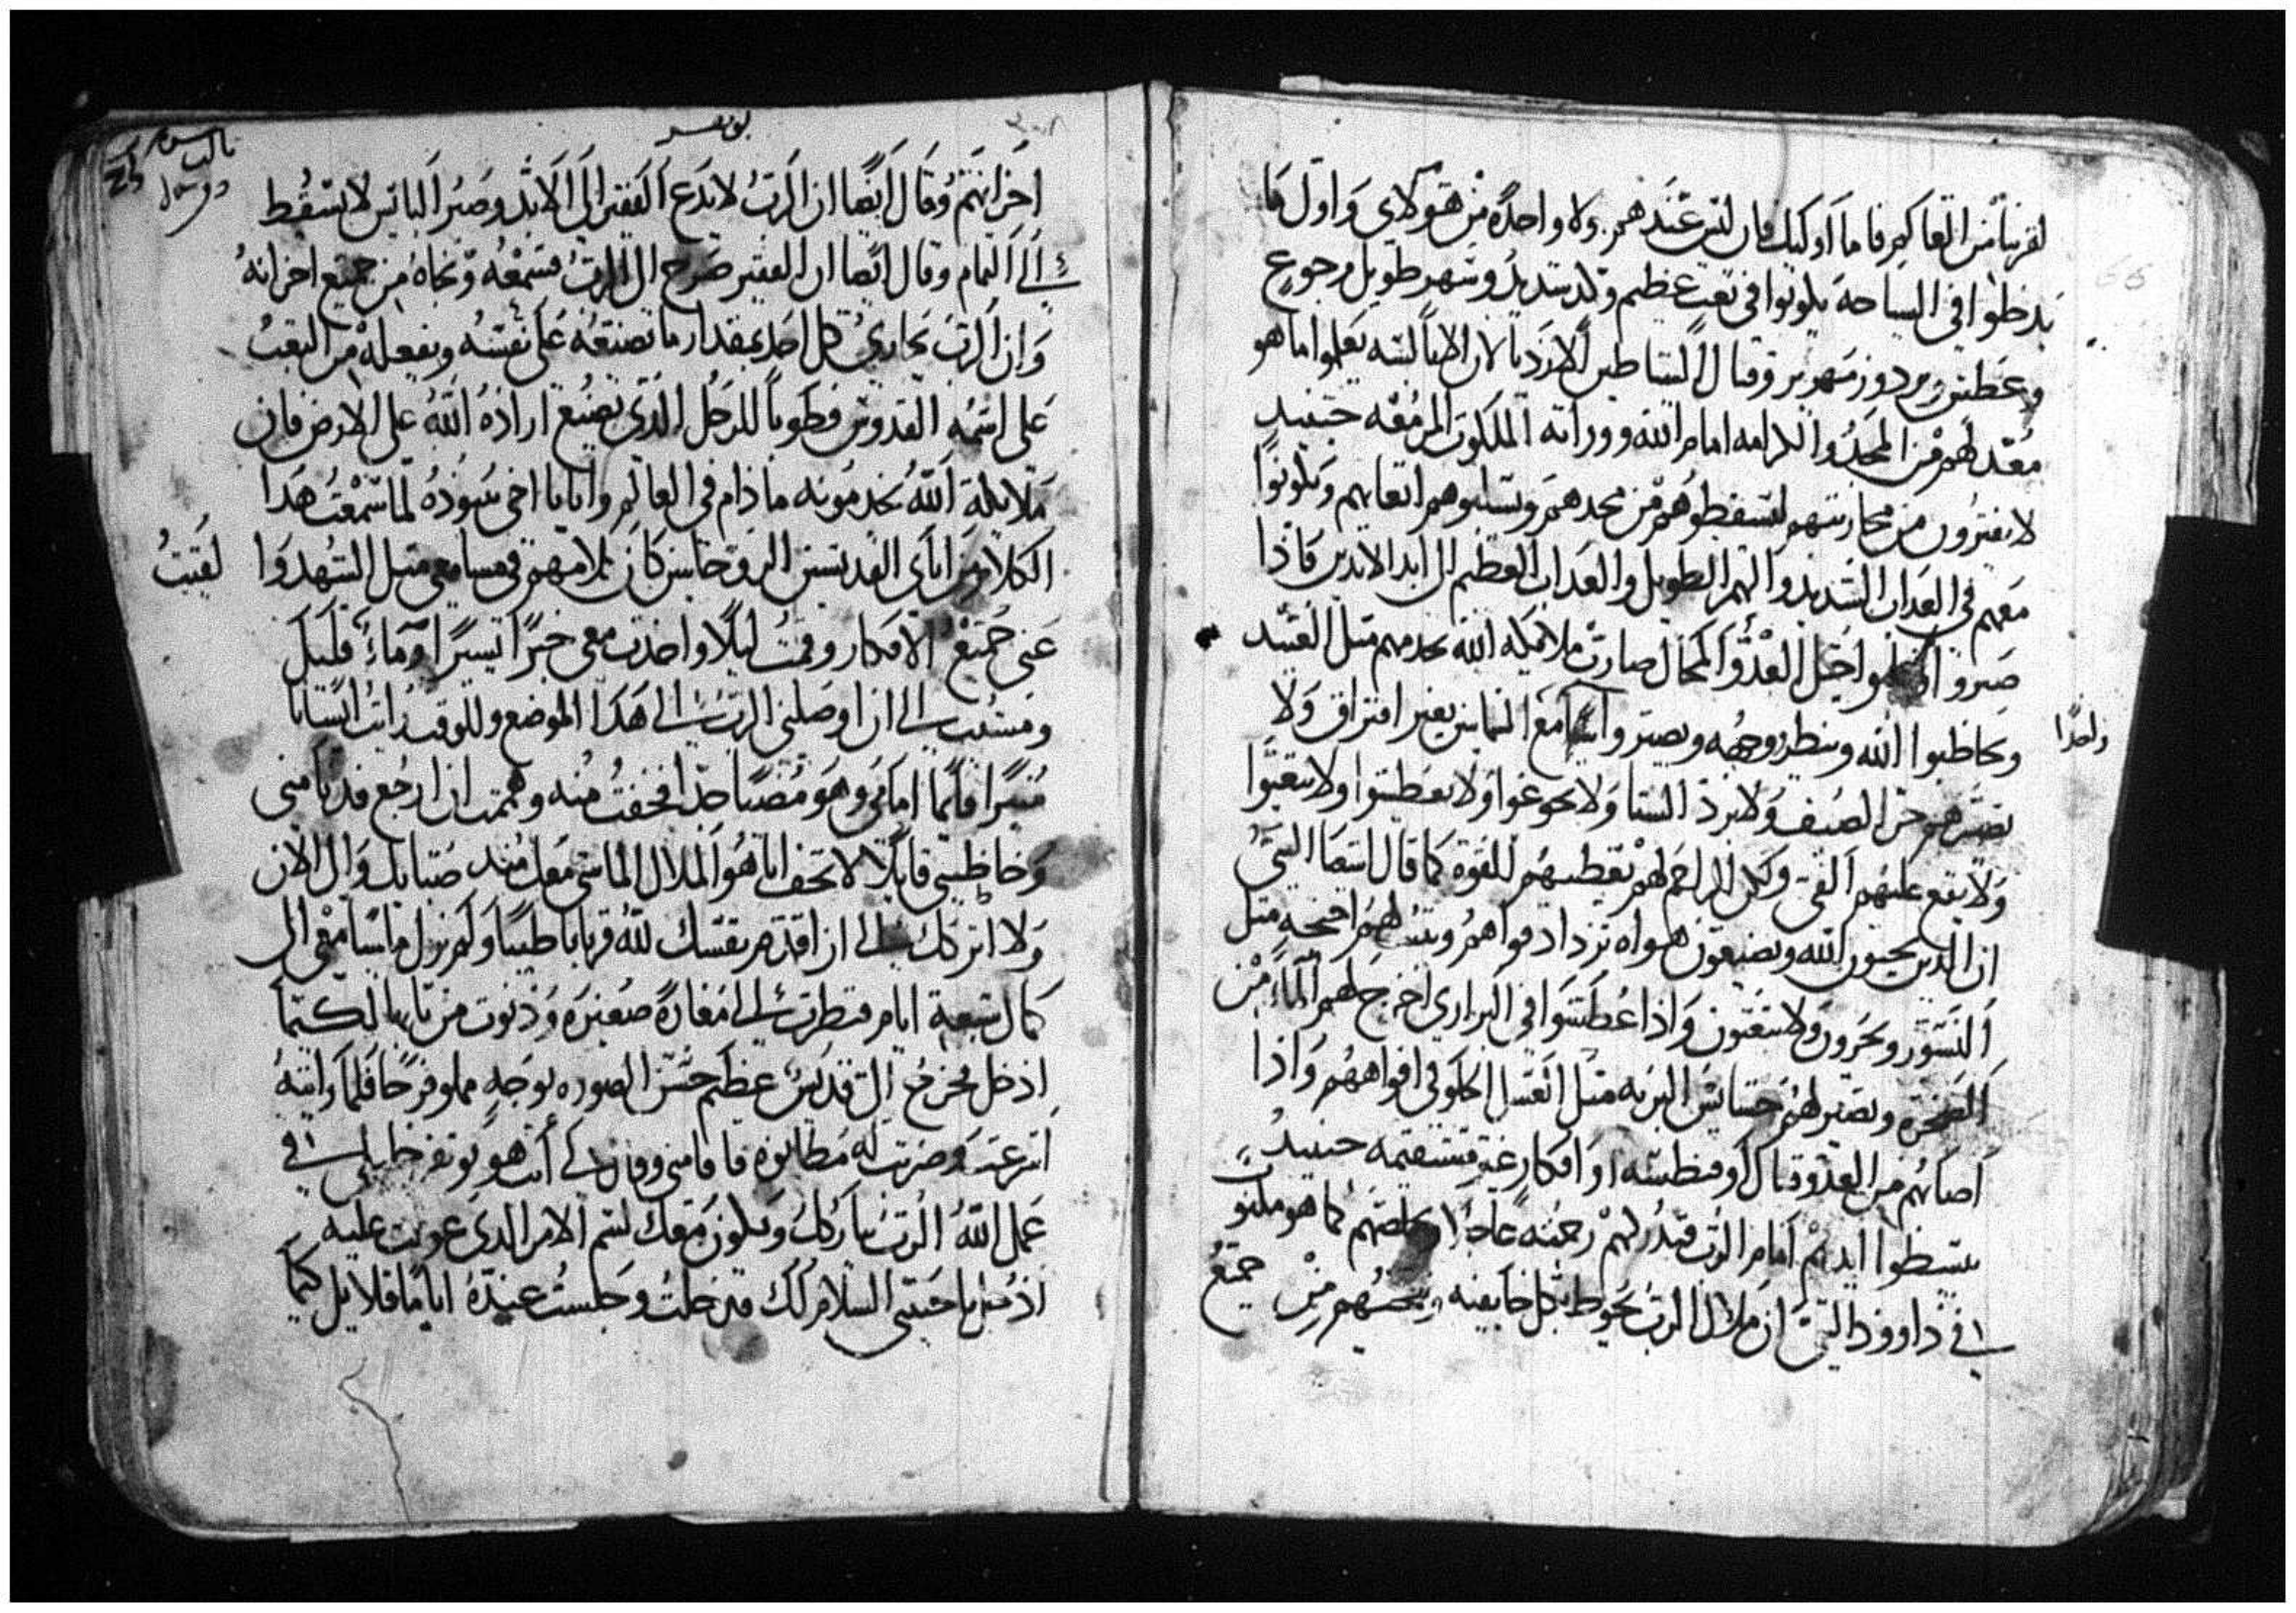 لقربنا من العالم فاما اوليك فان ليس عندهم ولا واحده من هولاي واول ما
يدخلوا في السياحه يكونوا في تعب عظيم وكد شديد وسهر طويل وجوع
وعطش وبرد وزمهرير وقتال الشياطين الارديا لان الاباليسه يعلموا ما هو
معد لهم من المجد والكرامه امام الله ووراثة الملكوت المزمعه حينيد
لا يفترون من محاربتهم ليسقطوهم من مجدهم ويسلبوهم اتعابهم ويكونوا
معهم في العداب الشديد والهم الطويل والعداب العظيم الى ابد الابدين فاذا
صبروا واحتملوا حيل العدو المحال صارت ملايكة الله تخدمهم مثل العبيد
ويخاطبوا الله وينظروا وجهه ويصيروا مع الله بغير افتراق ولا
واحدا
يضرهم حر الصيف ولا برد الشتا ولا يجوعوا ولا يعطشوا ولا يتعبوا
ولا يقع عليهم الفتن وكل المراحم لهم يعطيهم القوة كما قال اشعيا النبي
ان الدين يحبون الله ويصنعون هواه تزداد قواهم وينبت لهم اجنحه مثل
النسور ويجرون ولا يتعبون واذا عطشوا في البراري اخرج لهم الماء من
الصخره ويصير لهم حشايش البريه مثل العسل الحلو في افواههم واذا
اصابهم من العدو قتال او فنطسه او افكار غير مستقيمه حينيد
يبسطوا ايديهم امام الرب فتدركهم رحمته عاجلا ويخلصهم كما هو مكتوب
في داوود النبي ان ملاك الرب يحوط بكل خايفيه وينجيهم من جميع
احزانهم وقال ايضا ان الرب لا يدع الفقير الى الابد وصبر البايس لا يسقط
الى التمام وقال ايضا ان الفقير صرخ الى الرب فسمعه ونجاه من جميع احزانه
وان الرب يجازي كل احد بمقدار ما تصنعه على نفسه ويفعله من التعب
على اسمه القدوس فطوبا للرجل الذي يصنع ارادة الله على الارض فان
ملايكة الله يخدمونه ما دام في العالم وانا يا اخي نبوده لما سمعت هدا
الكلام من اباي القديسين الروحانيين كان كلامهم في مسامعي مثل الشهد والقيت
عني جميع الافكار وقمت ليلا واخذت معي خبزا يسيرا وماء قليل
ومشيت الى ان اوصلني الرب الى هذا الموضع وللوقت رايت انسانا
منيرا قايما امامي وهو مضيا جدا فخفت منه وهممت ان ارجع فدنا مني
وخاطبني قايلا لا تخف انا هو الملاك الماشي معك مند صباك والى الان
ولا اتركك الى ان اقدم نفسك لله قربانا طيبا ولم يزل ماشيا معي الى
كمال سبعة ايام فنظرت الى مغارة صغيره ودنوت من بابها لكيما
ادخل فخرج الي قديس عظيم حسن الصوره بوجه مملو فرحا فلما رايته
انزعجت وضربت له مطانوه فاقامني وقال لي انت هو نبوده في
عمل الله الرب يباركك ويكون معك لتتم الامر الذي عولت عليه
ادخل يا حبيبي السلام لك فدخلت وجلست عنده اياما قلايل كيما